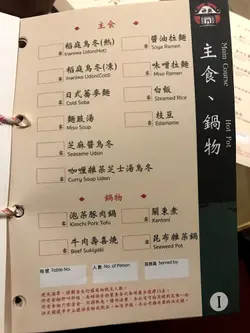 主食
稻庭烏冬(熱)
Inaniwa Udon(Hot)
醬油拉麵
Soya Ramen
稻庭烏冬(凍)
Inaniwa Udon(Cold)
味噌拉麵
Miso Ramen
日式蕎麥麵
Cold Soba
白飯
Steamed Rice
麵豉湯
Miso Soup
枝豆
Edamame
芝麻醬烏冬
Seasame Udon
咖喱雜菜芝士湯烏冬
Curry Soup Udon
鍋物
泡菜豚肉鍋
Kimchi Pork Tofu
關東煮
Kantoni
牛肉壽喜燒
Beef Sukiyaki
昆布雜菜鍋
Seaweed Pot
枱號 Table No.
人數 No. of Person
服務員 Served by
主食、鍋物
Main Course
Hot Pot
1